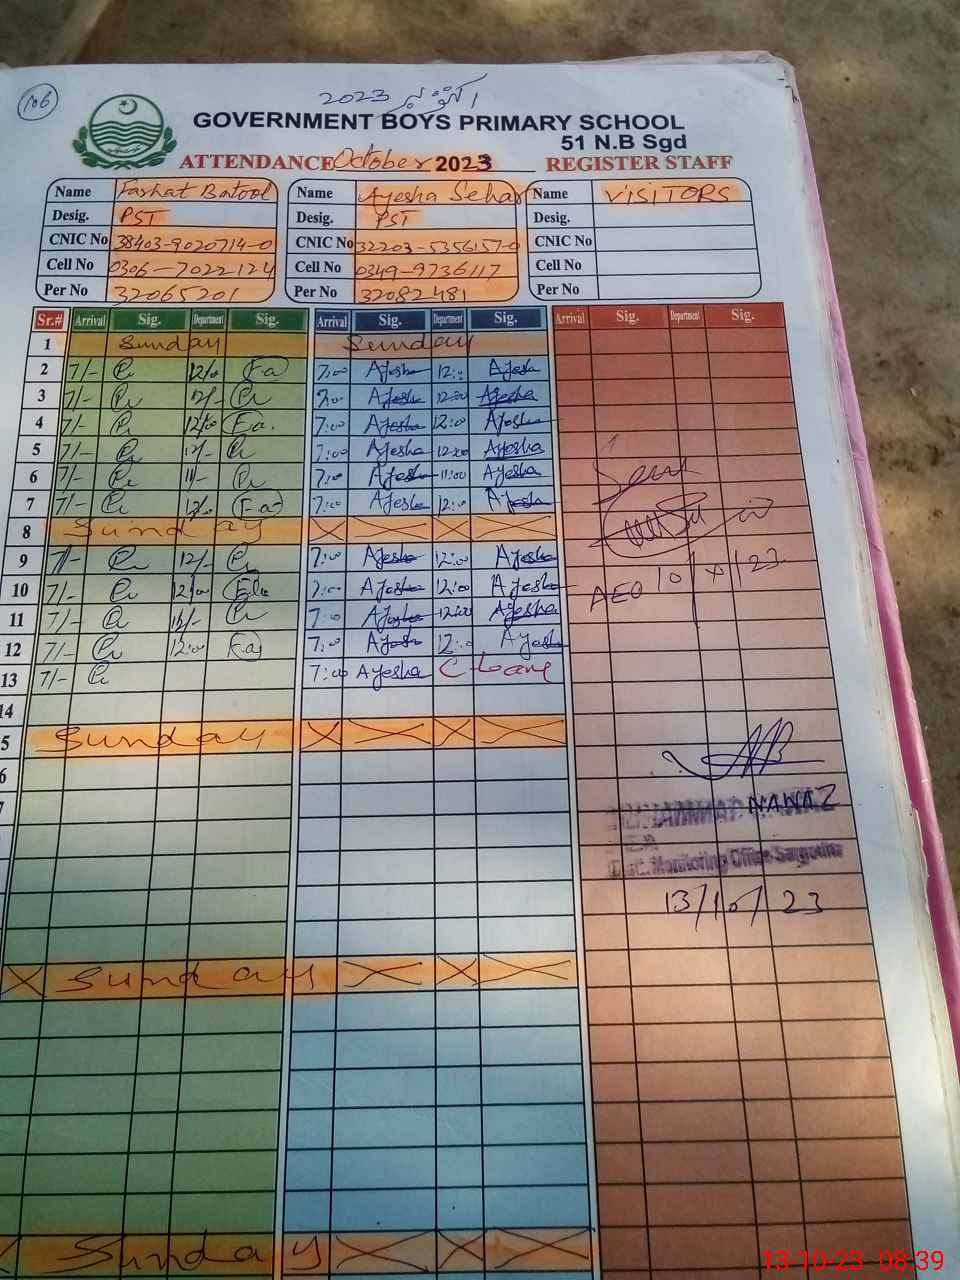 106
2023 اکتوبر
GOVERNMENT BOYS PRIMARY SCHOOL
51 N.B Sgd
ATTENDANCE October 2023 REGISTER STAFF
Name Farhat Batool Name Ayesha Sehar Name VISITORS
Desig. PST Desig. PST Desig.
CNIC No 38403-9020714-0 CNIC No 32203-5356157-0 CNIC No
Cell No 0306-7022124 Cell No 0349-9736117 Cell No
Per No 32065201 Per No 32082481 Per No
Sr.# Arrival Sig. Department Sig. Arrival Sig. Department Sig. Arrival Sig. Department Sig.
1 Sunday Sunday
2 7/- 12/00 Fa 7:00 Ayesha 12:00 Ayesha
3 7/- 12/- 7:00 Ayesha 12:00 Ayesha
4 7/- 12/00 Fa. 7:00 Ayesha 12:00 Ayesha
5 7/- 12/- 7:00 Ayesha 12:00 Ayesha
6 7/- 11/- 7:00 Ayesha 11:00 Ayesha
7 7/- 12/- Fa 7:00 Ayesha 12:00 Ayesha
8 Sunday
9 7/- 12/- 7:00 Ayesha 12:00 Ayesha
10 7/- 12:00 7:00 Ayesha 12:00 Ayesha
AEO 10/X/23
11 7/- 12/- 7:00 Ayesha 12:00 Ayesha
12 7/- 12:00 Fa 7:00 Ayesha 12:00 Ayesha
13 7/- 7:00 Ayesha
14
5 Sunday
6
7
NAWAZ
MUHAMMAD NAWAZ
Distt. Monitoring Office Sargodha
13/10/23
Sunday
Sunday
13-10-23 08:39